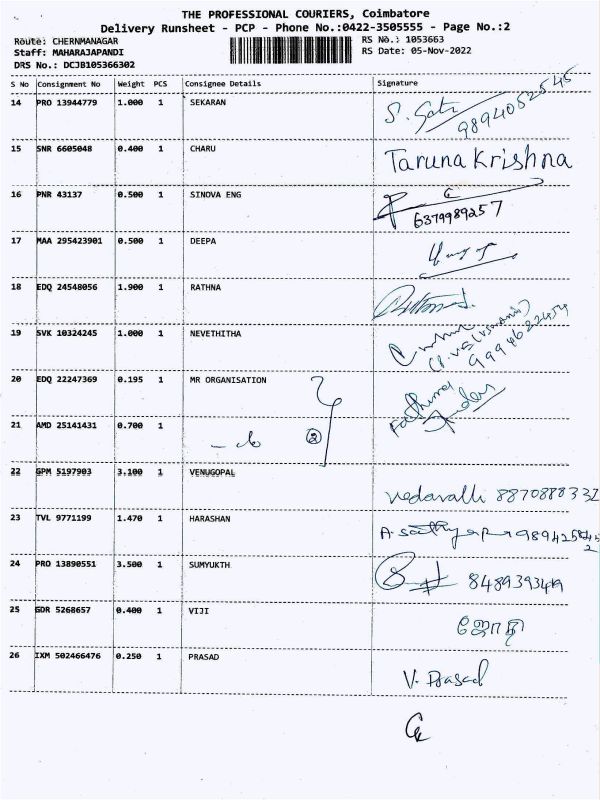 THE PROFESSIONAL COURIERS, Coimbatore
Delivery Runsheet - PCP - Phone No.:0422-3505555 - Page No.:2
Route: CHERNMANAGAR
RS No.: 1053663
Staff: MAHARAJAPANDI
RS Date: 05-Nov-2022
DRS No.: DCJB105366302
S No Consignment No Weight PCS Consignee Details Signature
14 PRO 13944779 1.000 1 SEKARAN
9894052545
15 SNR 6605048 0.400 1 CHARU Taruna Krishna
16 PNR 43137 0.500 1 SINOVA ENG
6379989257
17 MAA 295423901 0.500 1 DEEPA
18 EDQ 24548056 1.900 1 RATHNA
19 SVK 10324245 1.000 1 NEVETHITHA
20 EDQ 22247369 0.195 1 MR ORGANISATION
21 AMD 25141431 0.700 1
2
22 GPM 5197903 3.100 1 VENUGOPAL
vedavalli
23 TVL 9771199 1.470 1 HARASHAN
24 PRO 13890551 3.500 1 SUMYUKTH
25 GDR 5268657 0.400 1 VIJI
ஜோதி
26 IXM 502466476 0.250 1 PRASAD
V. Prasad